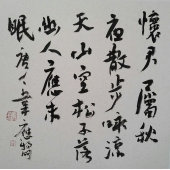 懷君屬秋
夜散步詠涼
天山空松子落
幽人應未
眠